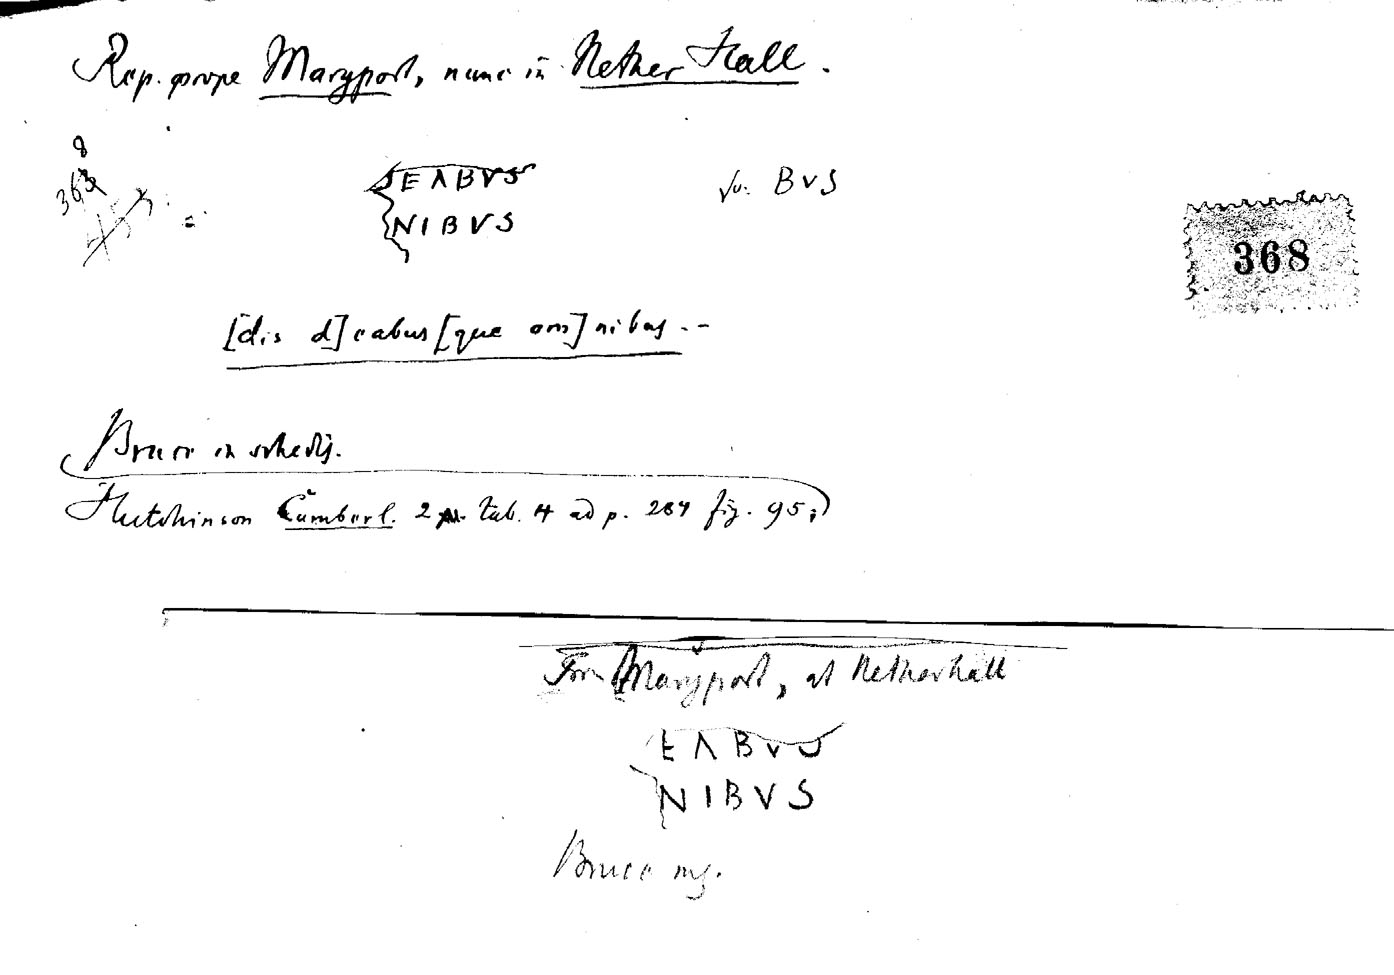 Rep. prope Maryport, nunc in Nether Hall.
8
363
EΛBVS
BVS
NIBVS
368
[dis d]eabus [que om]nibus --
Bruce in schedis.
Hutchinson Cumberl. 2 tab. 4 ad p. 284 fig. 95;
Maryport, at Netherhall
EΛBVS
NIBVS
Bruce